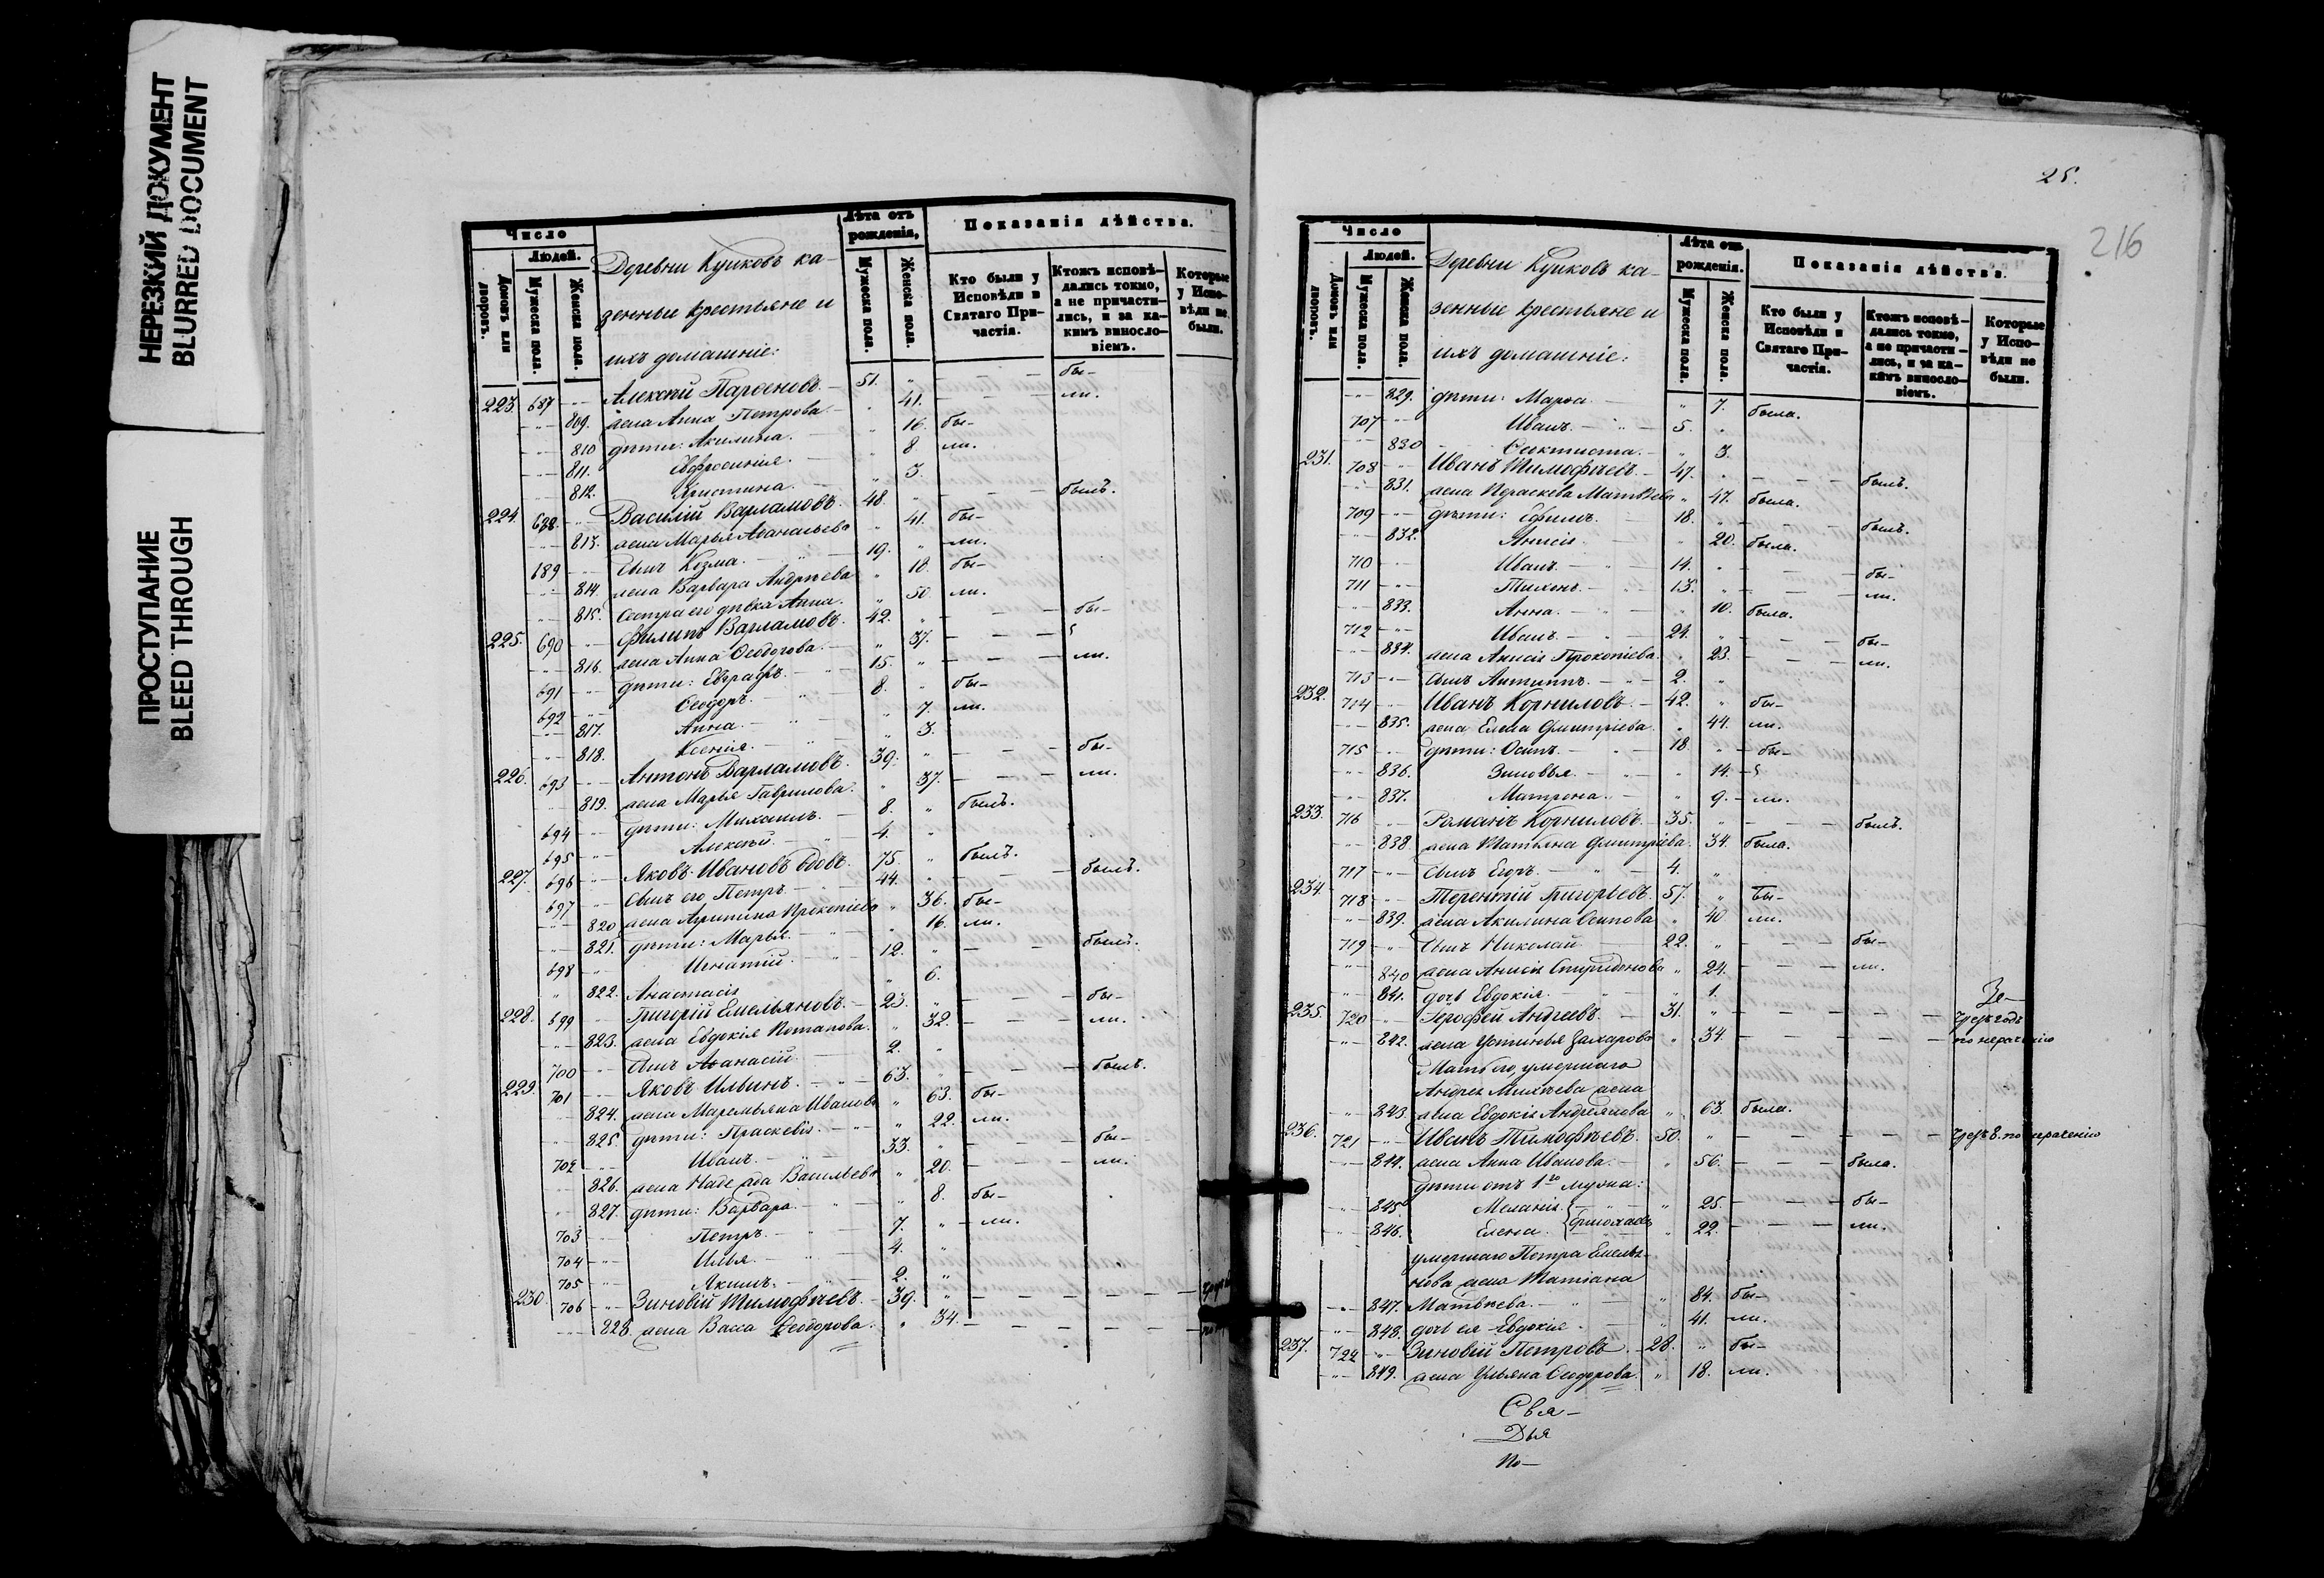 НЕРЕЗКИЙ ДОКУМЕНТ
BLURRED DOCUMENT
ПРОСТУПАНИЕ
BLEED THROUGH
Число
Людей.
Домовъ или дворовъ.
Мужеска пола.
Женска пола.
Деревни Куиковъ ка-
зенные крестьяне и
ихъ домашніе:
Лѣта отъ рожденія,
Мужеска пола.
Женска пола.
Показанія дѣйства.
Кто были у Исповѣди и Святаго При-частія.
Ктожъ исповѣ-дались токмо, а не причасти-лись, и за ка-кимъ виносло-віемъ.
Которые у Испо-вѣди не были.
223. 687 Алексѣй Парѳеновъ. 51. бы-
809. жена Анна Петрова. 41. ли.
810 дѣти: Акилина. 16. бы-
811. Евфросинія. 8 ли.
812. Христина. 3.
224. 688. Василій Варламовъ. 48. былъ.
813. жена Марья Аѳанасьева 41. бы-
689 сынъ Козма. 19. ли.
814. жена Варвара Андреева 18. бы-
815. Сестра его дѣвка Анна. 50. ли.
225. 690 Филипъ Варламовъ. 42. бы-
816. жена Анна Ѳеодорова. 37.
691 дѣти: Евграфъ. 15. ли.
692 Ѳеодоръ. 8. бы-
817. Анна. 7. ли.
818. Ксенія. 3.
226. 693 Антонъ Варламовъ. 39. бы-
819. жена Марья Гаврилова. 37. ли.
694 дѣти: Михаилъ. 8. былъ.
695 Алексѣй. 4.
227. 696 Яковъ Ивановъ вдовъ. 75. былъ.
697 сынъ его Петръ. 44. былъ.
820 жена Агрипина Прокопіева 36. бы-
821. дѣти: Марья. 16. ли.
698 Игнатій. 12. былъ.
822. Анастасія 6.
228. 699 Григорій Емельяновъ. 23. бы-
823. жена Евдокія Потапова. 32. ли.
700 сынъ Аѳанасій. 2.
229. 701 Яковъ Ильинъ. 63. былъ.
824. жена Маремьяна Иванова 63. бы-
825. дѣти: Праскевія. 22. ли.
702 Иванъ. 33. бы-
826. жена Надежда Васильева 20. ли.
827. дѣти: Варвара. 8. бы-
703 Петръ. 7. ли.
704 Илья. 4.
705 Якимъ. 2.
230. 706 Зиновій Тимофѣевъ. 39.
828. жена Васса Ѳеодорова. 34.
25.
216
Число
Людей.
Домовъ или дворовъ.
Мужеска пола.
Женска пола.
Деревни Куиковъ ка-
зенные крестьяне и
ихъ домашніе:
Лѣта отъ рожденія.
Мужеска пола.
Женска пола.
Показанія дѣйства.
Кто были у Исповѣди и Святаго При-частія.
Ктожъ исповѣ-дались токмо, а не причасти-лись, и за ка-кимъ виносло-віемъ.
Которые у Испо-вѣди не были.
829. дѣти: Марѳа. 7. была.
707 Иванъ. 5.
830 Ѳеоктиста. 3.
231. 708 Иванъ Тимофѣевъ. 47. былъ.
831. жена Параскева Матвѣева 47. была.
709 дѣти: Ефимъ. 18. былъ.
832. Анисія. 20. была.
710 Иванъ. 14. бы-
711 Тихонъ. 13. ли.
833. Анна. 10. была.
712 Иванъ. 24. бы-
834. жена Анисія Прокопіева. 23. ли.
713 сынъ Антипъ. 2.
232. 714 Иванъ Корниловъ. 42. бы-
835. жена Елена Дмитріева. 44. ли.
715 дѣти: Осипъ. 18. бы-
836. Зиновья. 14.
837. Матрона. 9. ли.
233. 716 Романъ Корниловъ. 35. былъ.
838. жена Татьяна Дмитріева. 34. была.
717 сынъ Егоръ. 4.
234. 718 Терентій Григорьевъ. 57. бы-
839. жена Акилина Осипова 40 ли.
719 сынъ Николай. 22. бы-
840 жена Анисія Спиридонова 24. ли.
841. дочь Евдокія. 1.
235. 720 Іерофей Андреевъ. 31.
842. жена Устинья Захарова 34. по нераченію
Мать его, умершаго
Андрея Михѣева жена
843. жена Евдокія Андреянова 63. была.
236. 721 Иванъ Тимофѣевъ. 50. по нераченію
844. жена Анна Иванова. 56. была.
дѣти отъ 1го мужа:
845. Меланія. 25. бы-
846. Елена. 22. ли.
умершаго Петра Емелья-
нова жена Татіана
847. Матвѣева. 84. бы-
848. дочь ея Евдокія. 41. ли.
237. 722 Зиновій Петровъ. 28. бы-
849. жена Ульяна Ѳеодорова. 18. ли.
Свя-
Дья
По-